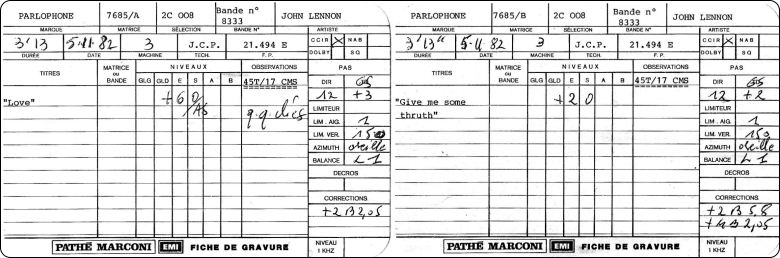 PARLOPHONE 7685/A 2C 008 Bande n° 8333 JOHN LENNON
MARQUE MATRICE SÉLECTION BANDE N° ARTISTE
3'13 5.11.82 3 J.C.P. 21.494 E CCIR X NAB
DURÉE DATE MACHINE TECH. F.P. DOLBY SQ
TITRES MATRICE ou BANDE NIVEAUX OBSERVATIONS PAS
GLG GLD E S A B 45T/17 CMS DIR
"Love" +6 12 +3
q.q clics LIMITEUR
LIM. AIG. 1
LIM. VER. 150
AZIMUTH oreille
BALANCE L 1
DECROS
CORRECTIONS
+2 B 2,05
PATHÉ MARCONI EMI FICHE DE GRAVURE NIVEAU 1 KHZ
PARLOPHONE 7685/B 2C 008 Bande n° 8333 JOHN LENNON
MARQUE MATRICE SÉLECTION BANDE N° ARTISTE
3'13" 3 J.C.P. 21.494 E CCIR X NAB
DURÉE DATE MACHINE TECH. F.P. DOLBY SQ
TITRES MATRICE ou BANDE NIVEAUX OBSERVATIONS PAS
GLG GLD E S A B 45T/17 CMS DIR
"Give me some +2 0 12 +2
thruth" LIMITEUR
LIM. AIG. 1
LIM. VER. 150
AZIMUTH oreille
BALANCE L 1
DECROS
CORRECTIONS
+2 B 5,8
+4 B 2,05
PATHÉ MARCONI EMI FICHE DE GRAVURE NIVEAU 1 KHZ